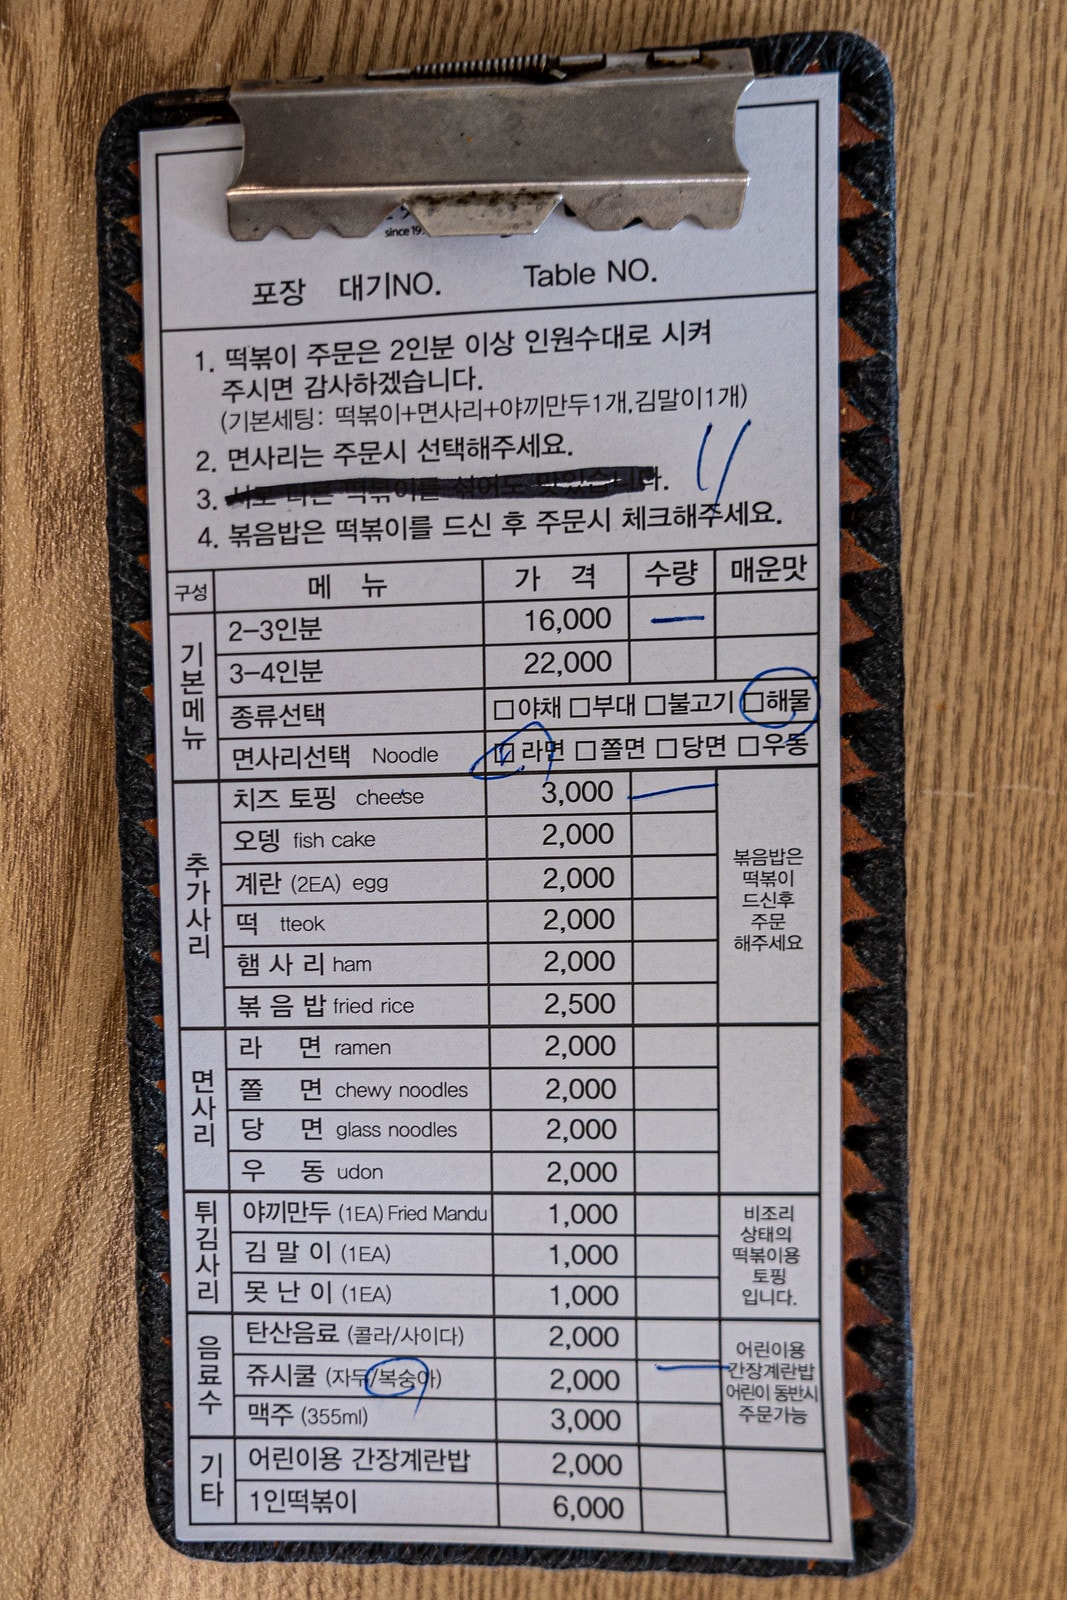 since 19
포장 대기NO. Table NO.
1. 떡볶이 주문은 2인분 이상 인원수대로 시켜
주시면 감사하겠습니다.
(기본세팅: 떡볶이+면사리+야끼만두1개,김말이1개)
2. 면사리는 주문시 선택해주세요.
3.
4. 볶음밥은 떡볶이를 드신 후 주문시 체크해주세요.
구성 메 뉴 가 격 수량 매운맛
기본메뉴
2-3인분 16,000 —
3-4인분 22,000
종류선택 □야채 □부대 □불고기 □해물
면사리선택 Noodle ☑라면 □쫄면 □당면 □우동
추가사리
치즈 토핑 cheese 3,000 —
오뎅 fish cake 2,000
계란 (2EA) egg 2,000
떡 tteok 2,000
햄 사 리 ham 2,000
볶 음 밥 fried rice 2,500
볶음밥은
떡볶이
드신후
주문
해주세요
면사리
라 면 ramen 2,000
쫄 면 chewy noodles 2,000
당 면 glass noodles 2,000
우 동 udon 2,000
튀김사리
야끼만두 (1EA) Fried Mandu 1,000
김 말 이 (1EA) 1,000
못 난 이 (1EA) 1,000
비조리
상태의
떡볶이용
토핑
입니다.
음료수
탄산음료 (콜라/사이다) 2,000
쥬시쿨 (자두/복숭아) 2,000 —
맥주 (355ml) 3,000
어린이용
간장계란밥
어린이 동반시
주문가능
기타
어린이용 간장계란밥 2,000
1인떡볶이 6,000